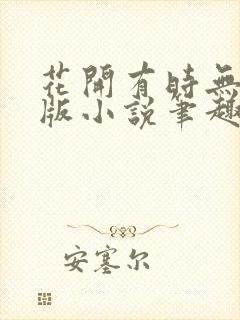 花開有時無
版小説筆趣
安塞尔